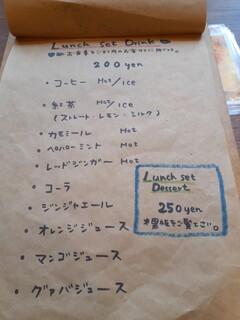 Lunch set Drink
200yen
・コーヒー Hot/ice
・紅茶 Hot/ice
(ストレート・レモン・ミルク)
・カモミール Hot
・ペパーミント Hot
・レッドジンガー Hot
・コーラ
・ジンジャエール
・オレンジジュース
・マンゴジュース
・グァバジュース
Lunch set
Dessert
250yen
※黒板をご覧下さい。